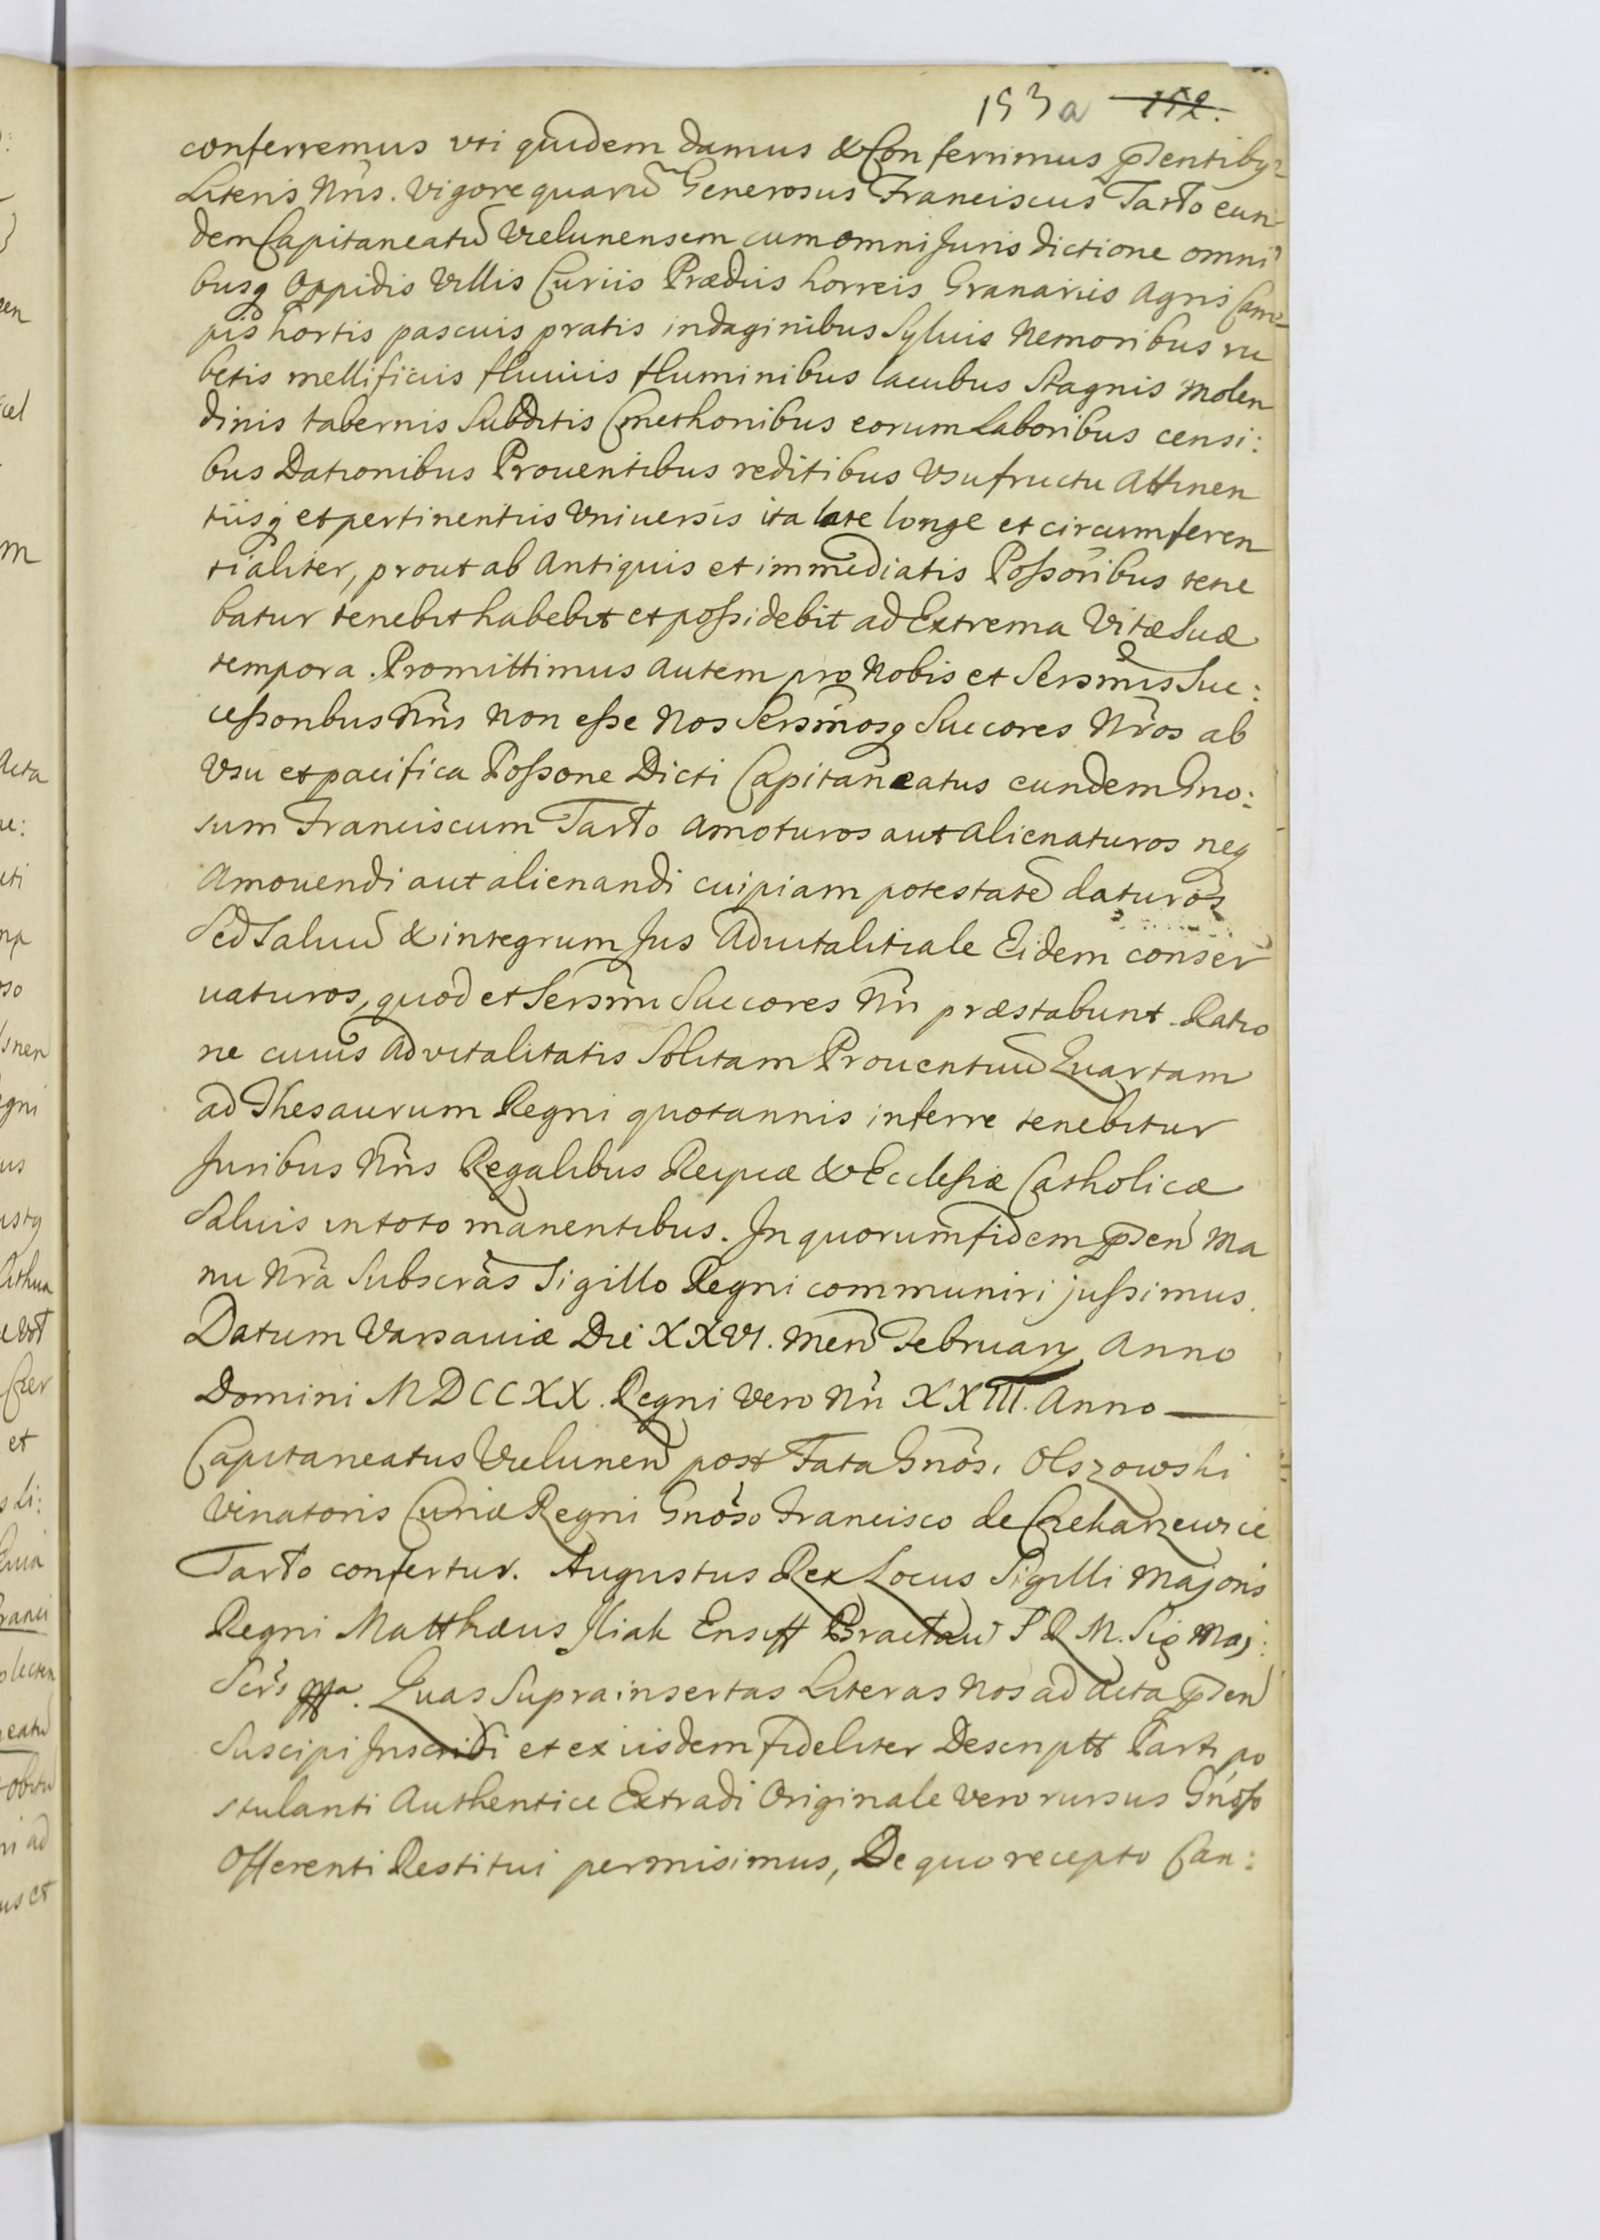 153a 152.
conferremus uti quidem damus & Conferrimus pntibq
Literis Nris. Vigore quarū Generosus Franciscus Tarło eun
dem Capitaneatū Vielunensem cum omni Juris dictione omni
busq Oppidis Villis Curiis Prædiis horreis Granariis Agris Cam=
pis hortis pascuis pratis indaginibus Sylvis Nemoribus ru
betis mellificiis fluviis fluminibus lacubus Stagnis Molen
dinis tabernis Subditis Cmethonibus eorum Laboribus censi:
bus Dationibus Proventibus reditibus Usufructu Attinen
tiisq et pertinentiis Universis ita late longe et circumferen
tialiter, prout ab Antiquis et immediatis Possoribus tene
batur tenebit habebit et possidebit ad Extrema Vitæ Suæ
tempora. Promittimus autem pro Nobis et Sersmis Suc:
cessoribus Nris Non esse Nos Sersmosq Succores Nros ab
Usu et pacifica Possone Dicti Capitaneatus eundem Gno:
sum Franciscum Tarło Amoturos aut Alienaturos neq
Amovendi aut alienandi cuipiam potestatē daturos
Sed Salvū & integrum Jus Advitalitiale Eidem conser
vaturos, quod et Sersmi Succores Nri præstabunt. Ratio
ne cuius Advitalitatis Solitam Proventuū Quartam
ad Thesaurum Regni quotannis inferre tenebitur
Juribus Nris Regalibus Reipcæ & Ecclesiæ Catholicæ
Salvis in toto manentibus. In quorum fidem pnten Ma
nu Nra Subscras Sigillo Regni communiri jussimus.
Datum Varsaviæ Die XXVI. Men Februarij Anno
Domini MDCCXX. Regni Vero Nri XXIII. Anno —
Capitaneatus Vielunen post Fata Gnosi Olszowski
Vinatoris Curiæ Regni Gnoso Francisco de Czekarzewice
Tarło confertur. Augustus Rex Locus Sigilli Majoris
Regni Matthæus Iliak Ensiff Bractav S R M. Sig Maj:
Scrs mpa. Quas Suprainsertas Literas Nos ad Acta pnten
Suscipi Inscribi et ex iisdem fideliter Descriptt Parti po
stulanti Authentice Extradi Originale vero rursus Gnoso
Offerenti Restitui permisimus, De quo recepto Can: